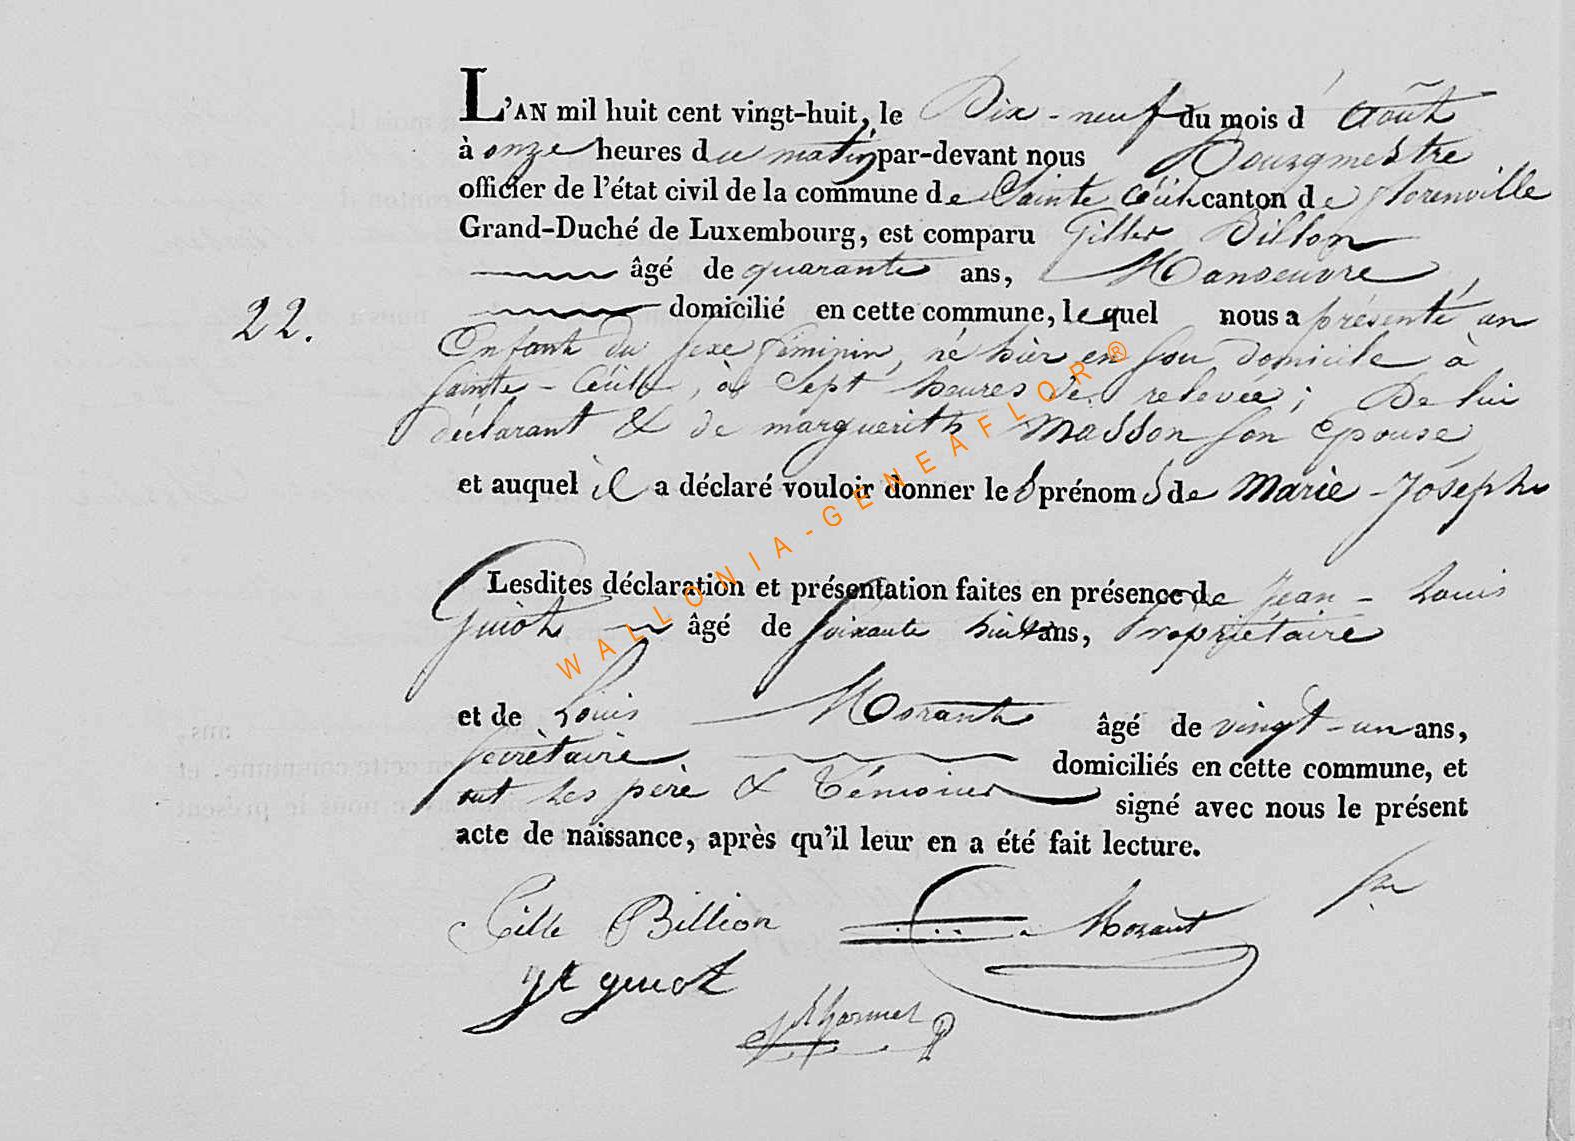 L'AN mil huit cent vingt-huit, le Dix-neuf du mois d'Août
à onze heures du matin par-devant nous Bourgmestre
officier de l'état civil de la commune de Sainte Cécile canton de florenville
Grand-Duché de Luxembourg, est comparu Gilles Billon
âgé de quarante ans, Manoeuvre
22. domicilié en cette commune, lequel nous a présenté un
Enfant du sexe féminin, né hier en son domicile à
Sainte-Cécile, à Sept heures de relevée; De lui
déclarant & de marguerith Masson son Epouse
et auquel il a déclaré vouloir donner les prénoms de Marie-Josephe
Lesdites déclaration et présentation faites en présence de Jean-Louis
Guiot âgé de soixante huit ans, Propriétaire
et de Louis Morant âgé de vingt-un ans,
secrètaire domiciliés en cette commune, et
ont les père & Témoins signé avec nous le présent
acte de naissance, après qu'il leur en a été fait lecture.
Gille Billion Morant
guiot
WALLONIA-GENEAFLOR®